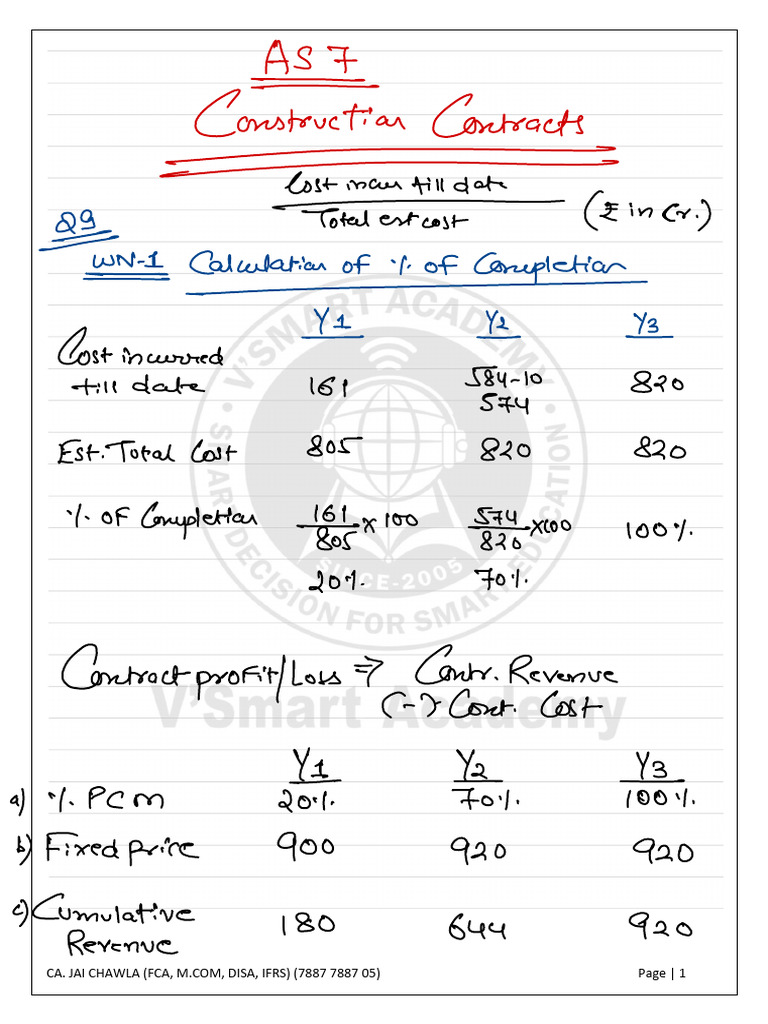 AS 7
Construction Contracts
Cost incur till date
Total est cost
(₹ in Cr.)
Q9
WN-1 Calculation of % of Completion
Y1 Y2 Y3
Cost incurred
till date 161 584-10 820
574
Est. Total Cost 805 820 820
% of Completion 161/805 x 100 574/820 x100 100%
20% 70%
Contract profit/Loss ⇒ Contr. Revenue
(-) Cont. Cost
Y1 Y2 Y3
a) % PCM 20% 70% 100%
b) Fixed price 900 920 920
c) Cumulative
Revenue 180 644 920
V'SMART ACADEMY
SMART DECISION FOR SMART EDUCATION
SINCE-2005
V'Smart Academy
CA. JAI CHAWLA (FCA, M.COM, DISA, IFRS) (7887 7887 05) Page | 1